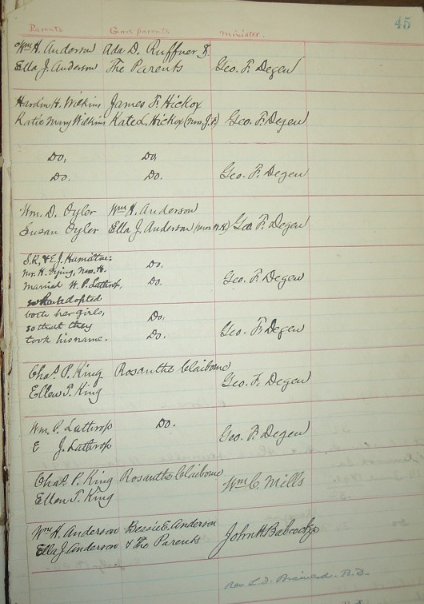 45
Parents Gave parents Minister.
Wm. H. Anderson Ada D. Ruffner &
Ella J. Anderson The Parents Geo. F. Degen
Hardin H. Wilkins James F. Hickox
Katie Mary Wilkins Kate L. Hickox (Mrs. J. F.) Geo. F. Degen
Do, Do,
Do. Do. Geo. F. Degen
Wm. D. Oyler Wm. H. Anderson
Susan Oyler Ella J. Anderson (Mrs. W. H.) Geo. F. Degen
S.R. & E.J.
Mr. H. dying, Mrs. H. Do.
married W. P. Lathrop, Do. Geo. F. Degen
who adopted
both her girls, Do.
so that they Do. Geo. F. Degen
took his name.
Chas. P. King Rosanthe Claiborne
Ellen T. King Geo. F. Degen
Wm. P. Lathrop Do.
E J. Lathrop Geo. F. Degen
Chas. P. King Rosanthe Claiborne
Ellen T. King Wm. C. Mills
Wm. H. Anderson Bessie C. Anderson
Ella J. Anderson & The Parents John H. Babcock
Rev. L. D. Brainard